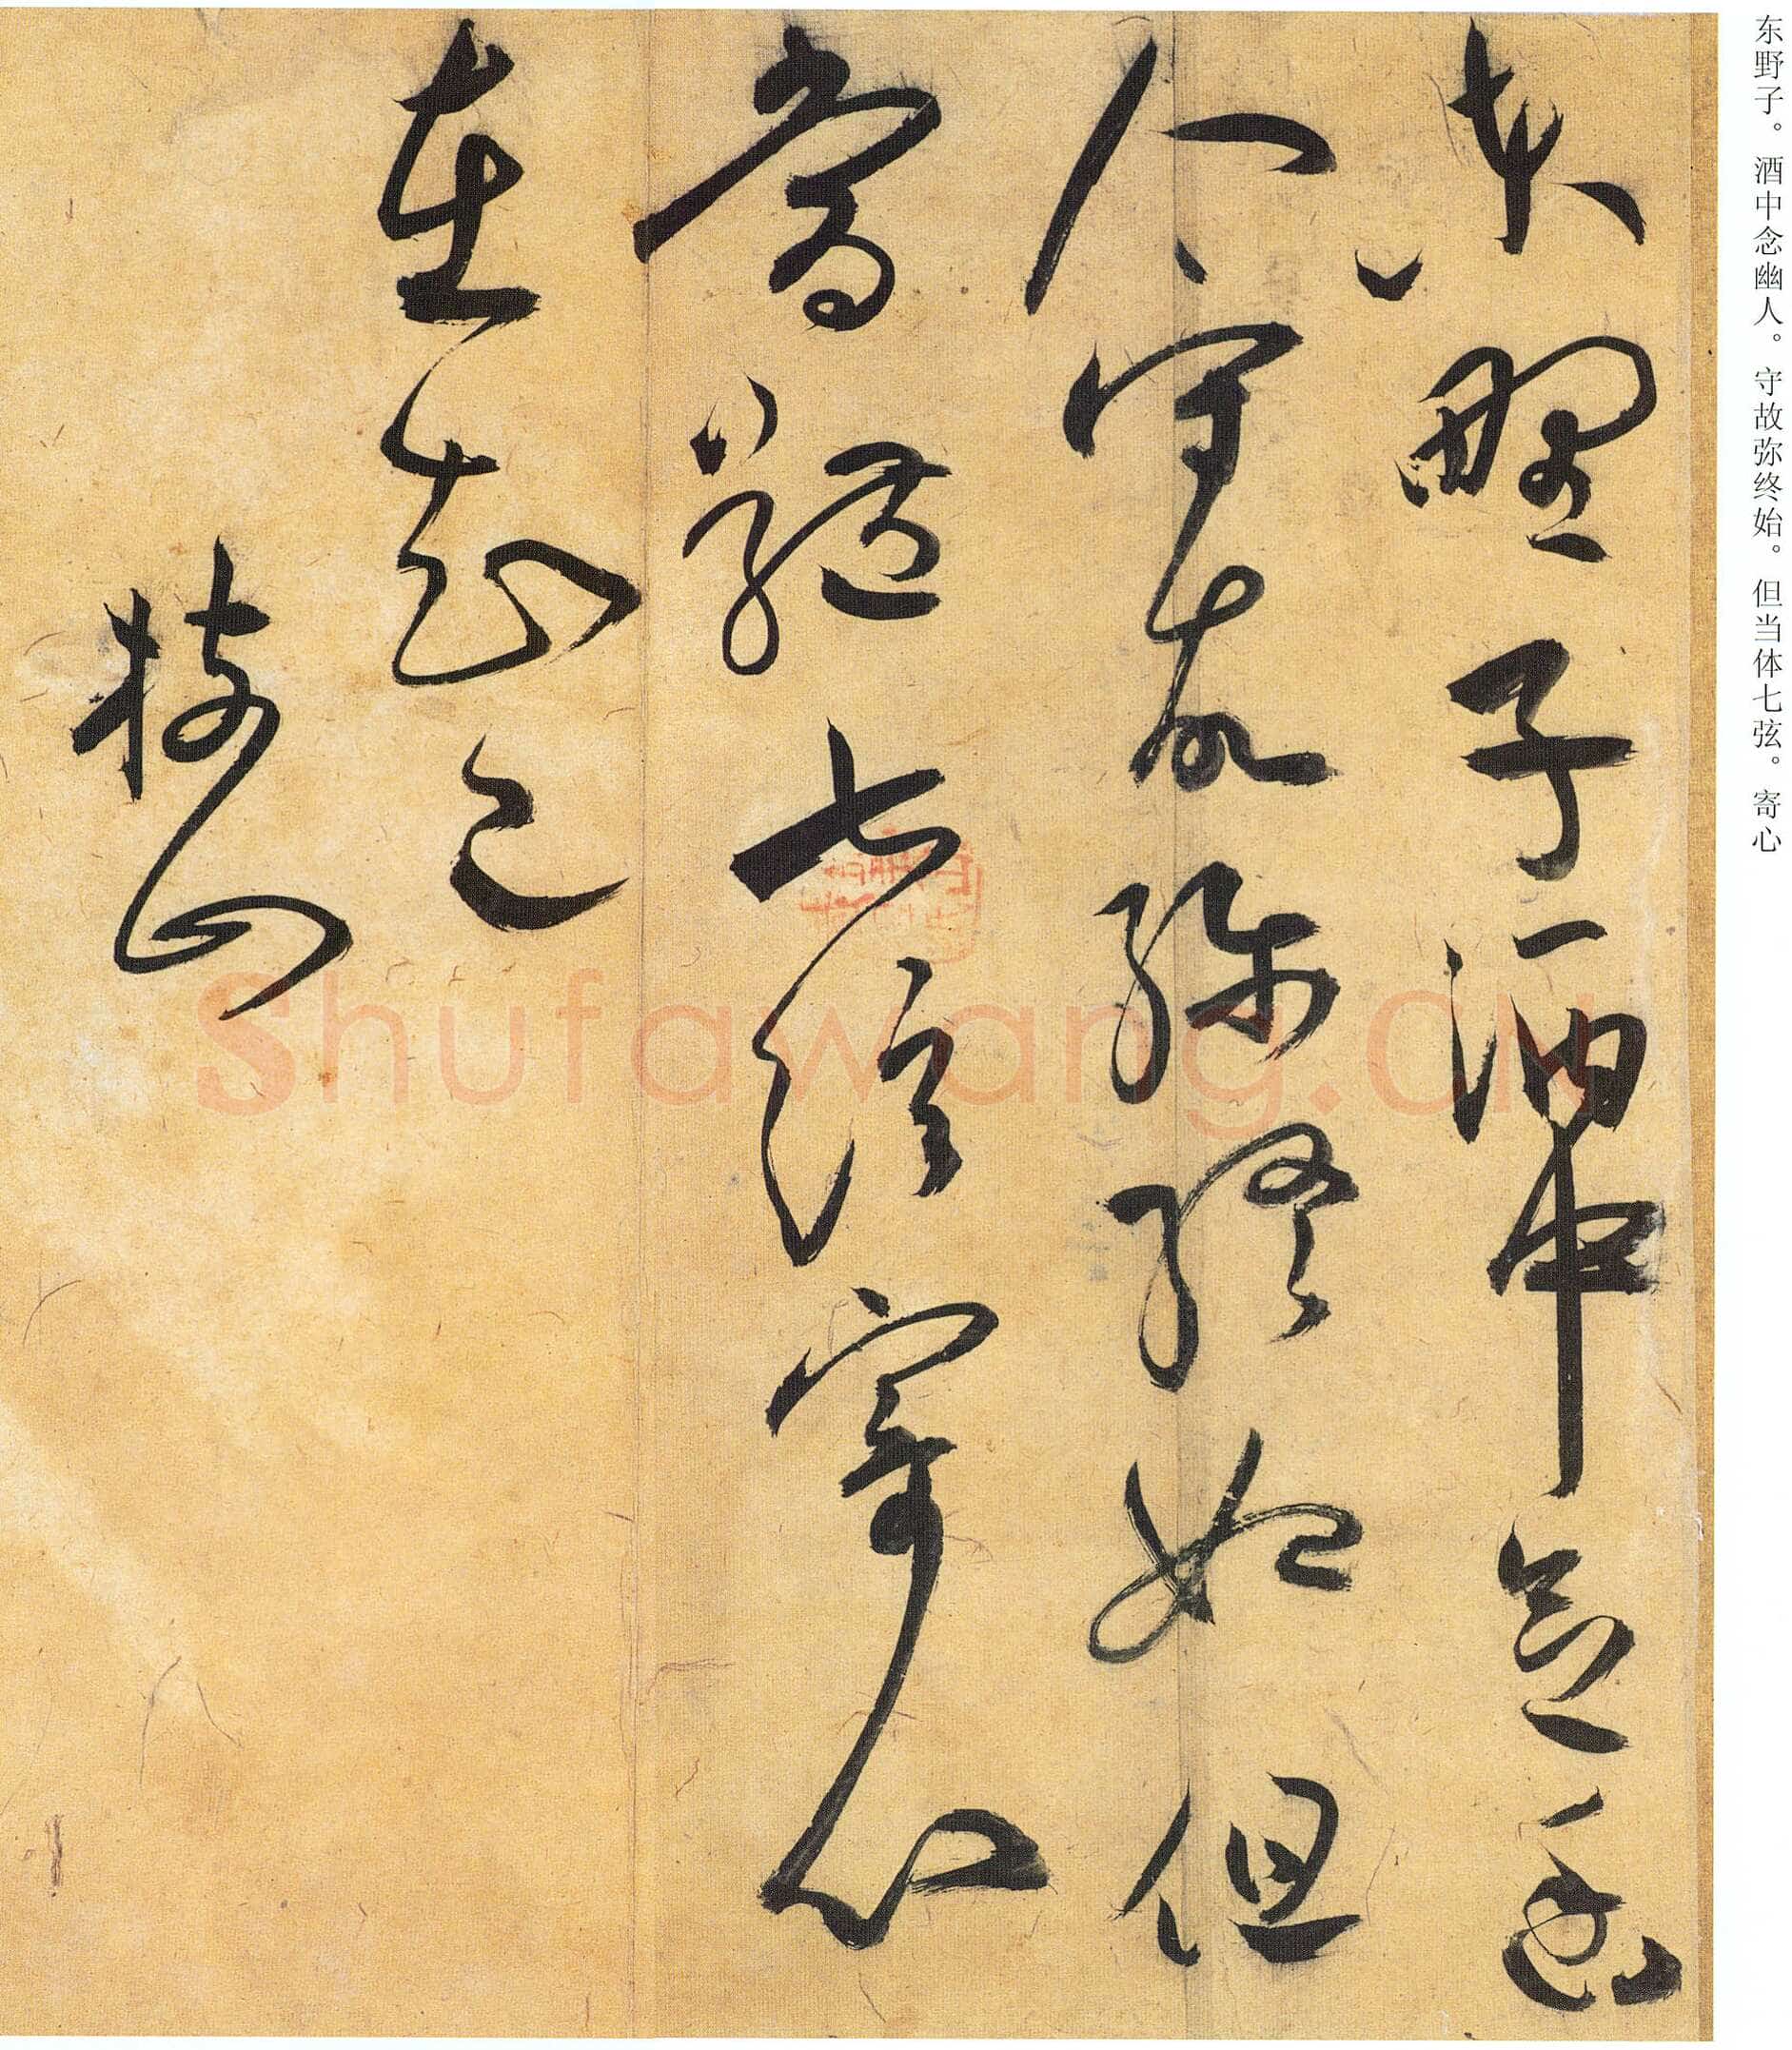 东野子。酒中念幽人。守故弥终始。但当体七弦。寄心
東野子酒中念幽
人守故彌終始但
當體七弦寄心
在知己
枝山
Shufawang.CN